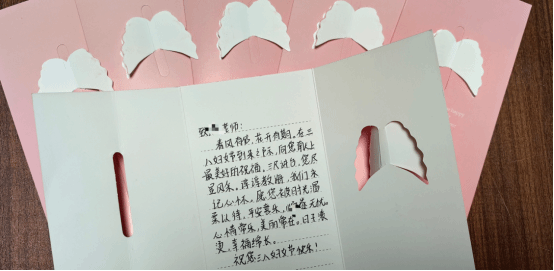 老师:
春风有信,花开有期。在三
八妇女节到来之际,向您献上
最美好的祝福。三尺讲台,您尽
显风采。谆谆教诲,我们永
记心怀。愿您被时光温
柔以待,平安喜乐,心无忧。
心情常乐,美丽常在。日子寒
更,幸福绵长。
祝您三八妇女节快乐!